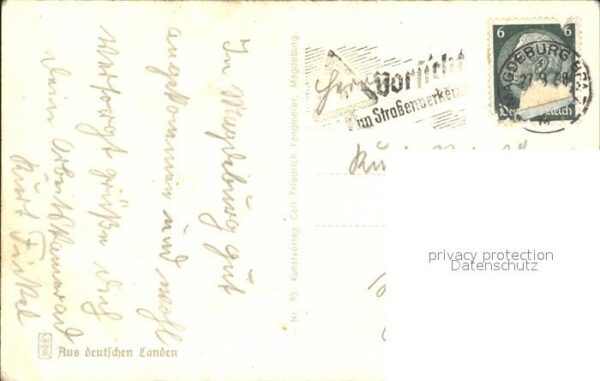 In Magdeburg gut
angekommen und wohl
versorgt grüße Dich
Dein Arbeitskamerad
Kurt Finkel
Aus deutschen Landen
Nr. 95 Kunstverlag Carl Friedrich Fangmeier, Magdeburg
Vorsicht
im Straßenverkehr
MAGDEBURG
6 6
Deutsches Reich
Herrn
privacy protection
Datenschutz